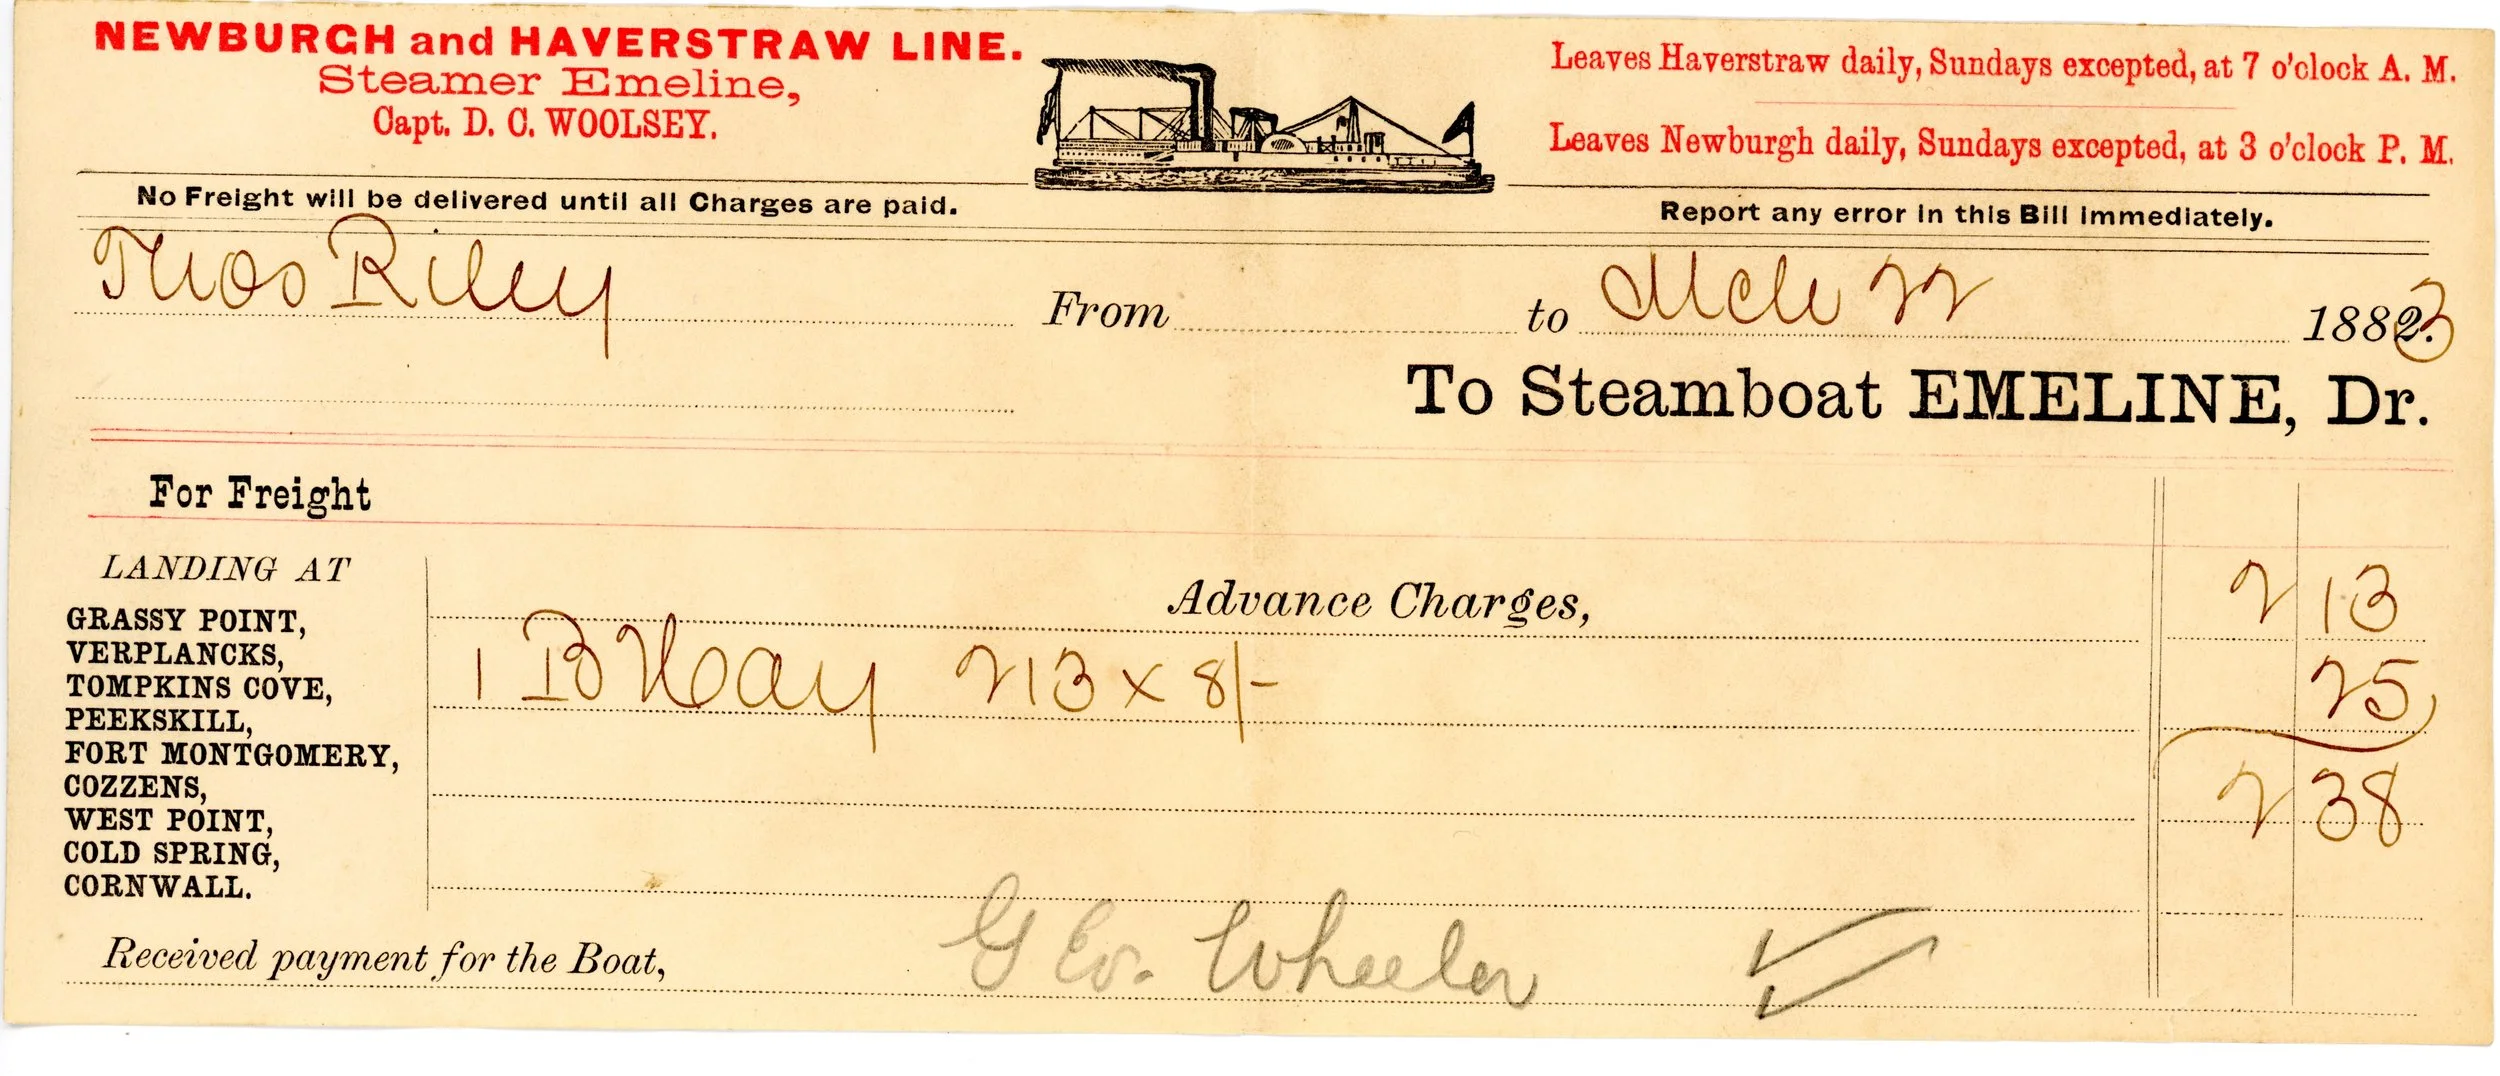 NEWBURGH and HAVERSTRAW LINE.
Steamer Emeline,
Capt. D. C. WOOLSEY.
Leaves Haverstraw daily, Sundays excepted, at 7 o'clock A. M.
Leaves Newburgh daily, Sundays excepted, at 3 o'clock P. M.
No Freight will be delivered until all Charges are paid.
Report any error in this Bill immediately.
Thos Riley From to Mch 22 1883
To Steamboat EMELINE, Dr.
For Freight
LANDING AT
GRASSY POINT,
VERPLANCKS,
TOMPKINS COVE,
PEEKSKILL,
FORT MONTGOMERY,
COZZENS,
WEST POINT,
COLD SPRING,
CORNWALL.
Advance Charges, 2 13
1 B Hay 213 x 8/- 25
2 38
Received payment for the Boat, Geo. Wheeler